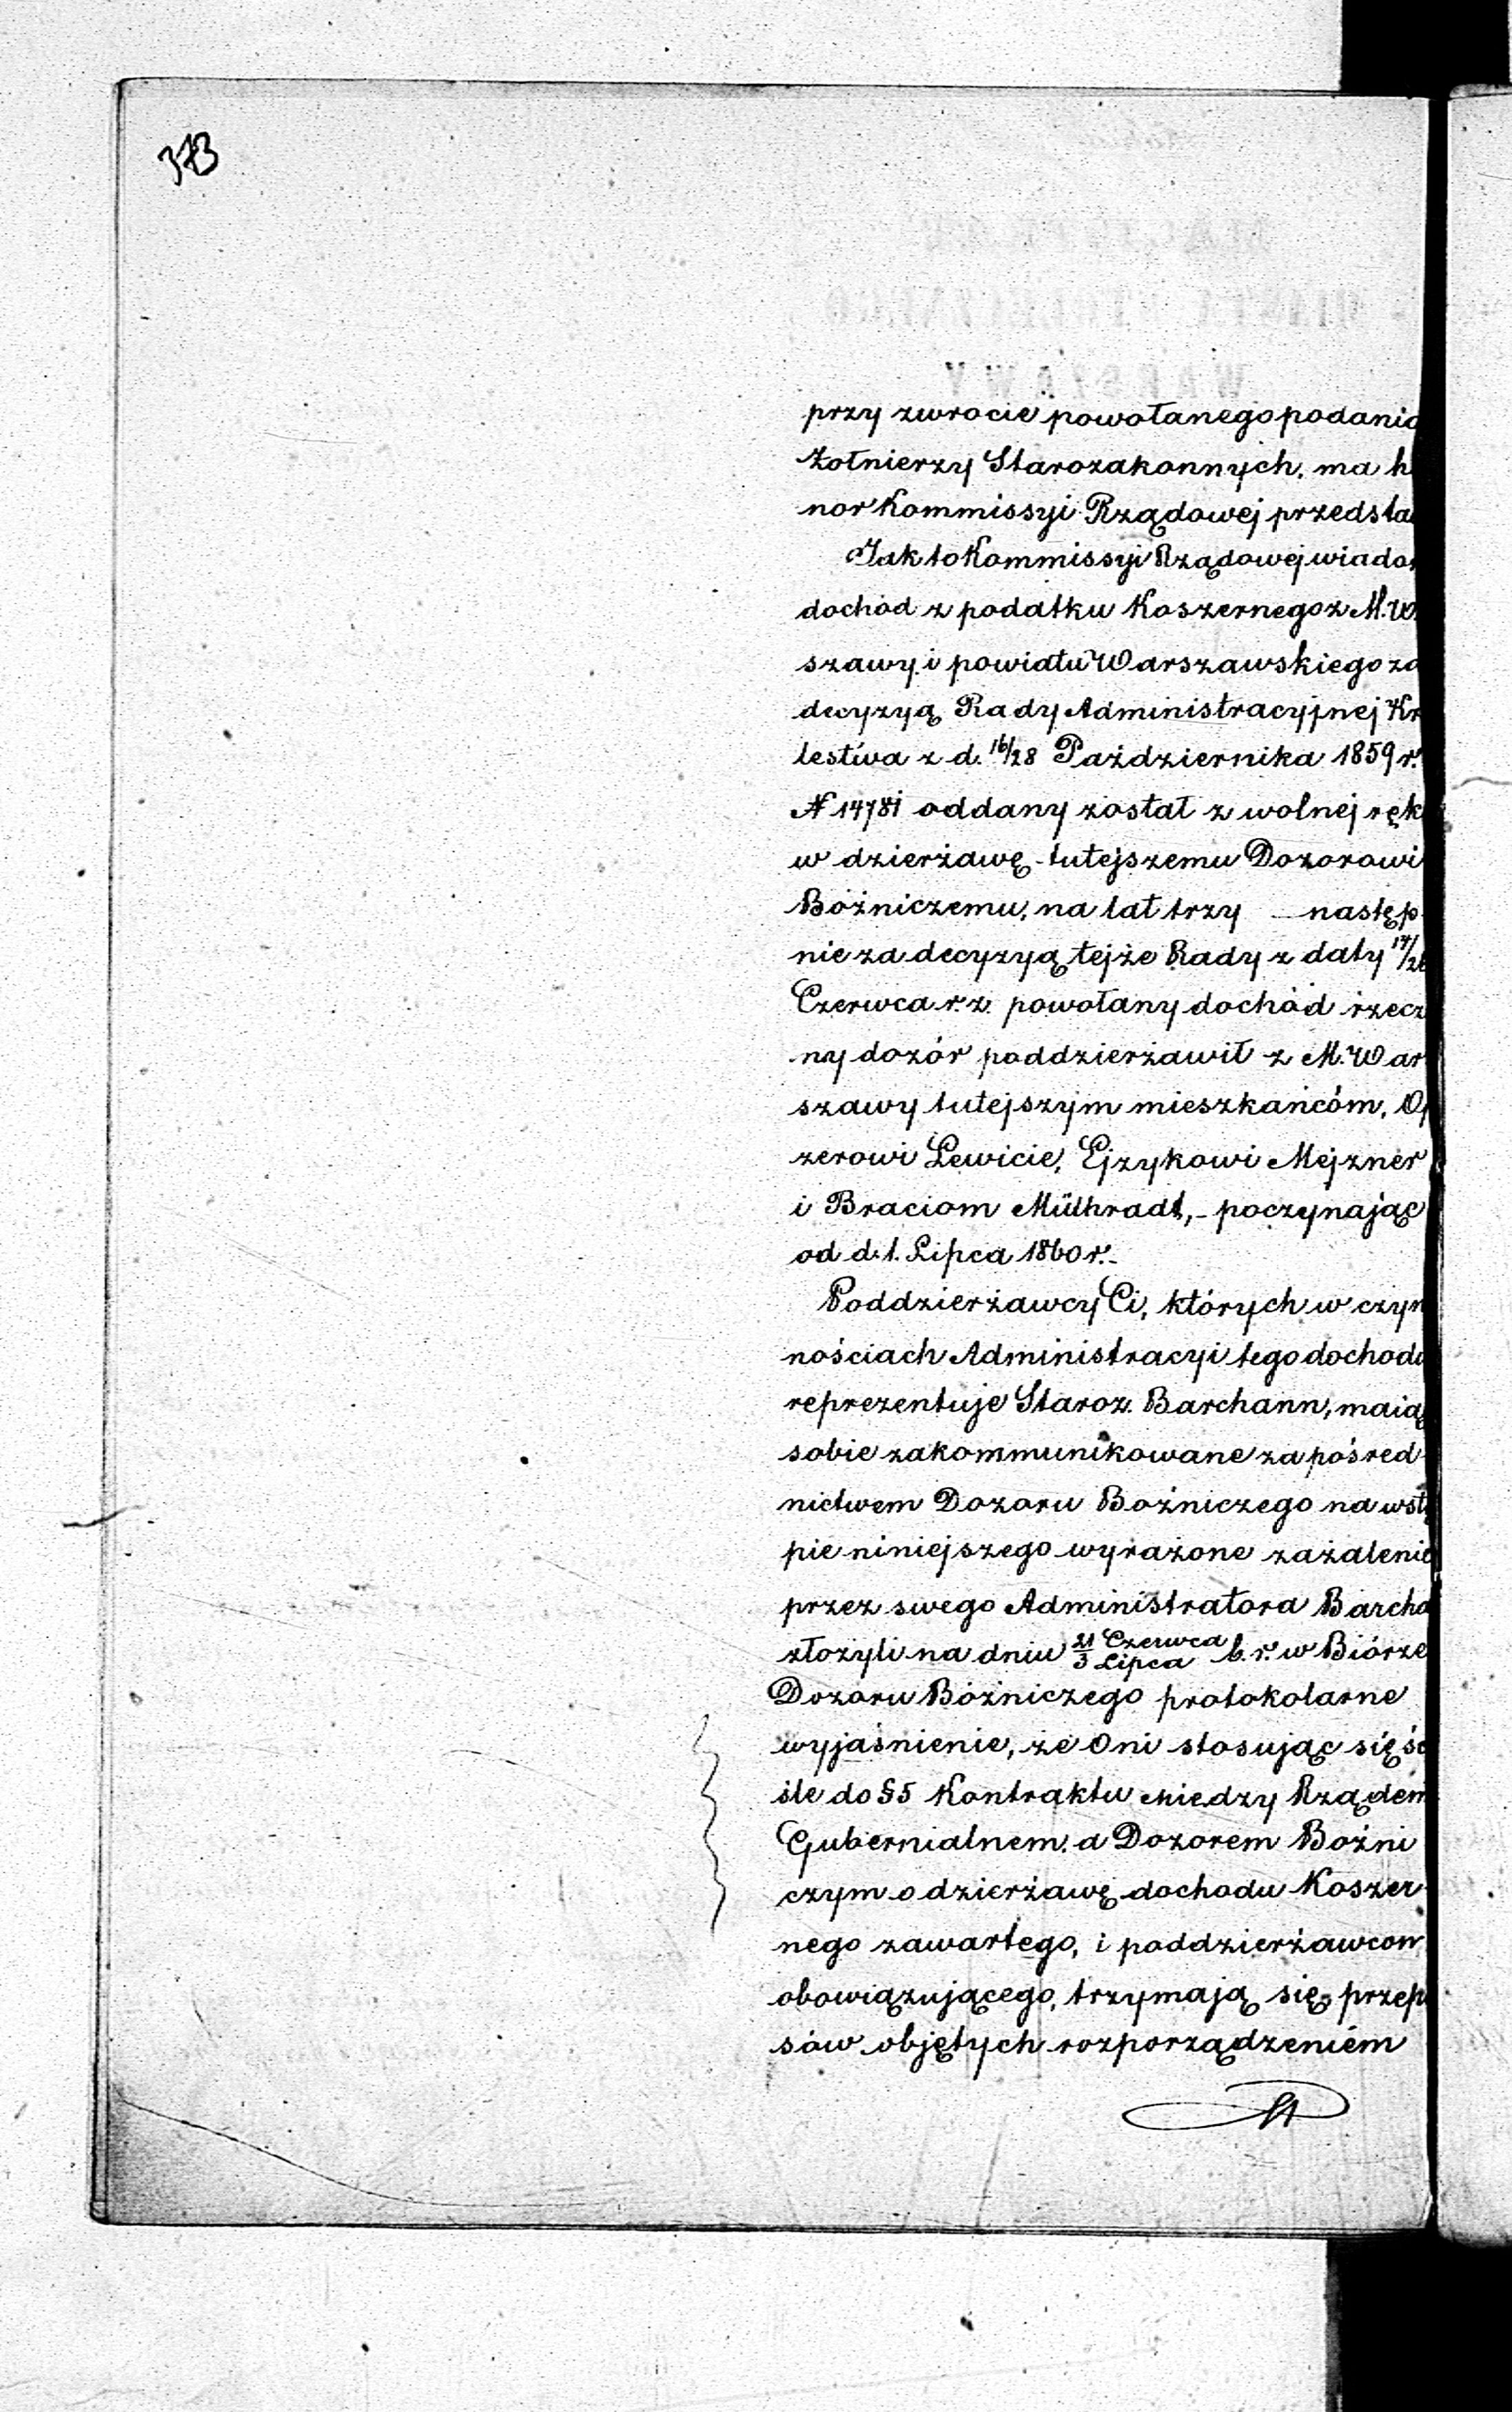 373
przy zwrocie powołanego podania
Żołnierzy Starozakonnych, ma h
nor Kommissyi Rządowej przedsta
Jak to Kommissyi Rządowej wiado
dochód z podatku Koszernego z M. W
szawy i powiatu Warszawskiego za
decyzyą Rady Administracyjnej Kr
lestwa z d. 16/28 Października 1859 r.
N 14781 oddany został z wolnej ręk
w dzierżawę tutejszemu Dozorowi
Bóżniczemu, na lat trzy — następ
nie za decyzyą tejże Rady z daty
Czerwca r. z. powołany dochód rzecz
ny dozór poddzierżawił z M. War
szawy tutejszym mieszkańcóm,
zerowi Lewicie, Ejzykowi Mejzner
i Braciom Mülhradt, - poczynając
od d. 1. Lipca 1860 r. -
Poddzierżawcy Ci, których w czyn
nościach Administracyi tego dochodu
reprezentuje Staroz. Barchann, maią
sobie zakommunikowane za pośred-
nictwem Dozoru Bożniczego na wstę
pie niniejszego wyrażone zażalenie
przez swego Administratora Barcha
złożyli na dniu 21 Czerwca / 3 Lipca b. r. w Biórze
Dozoru Bóżniczego protokolarne
wyjaśnienie, że Oni stosując się ści
śle do §5 Kontraktu miedzy Rządem
Gubernialnem, a Dozorem Bożni
czym o dzierżawę dochodu Koszer-
nego zawartego, i poddzierżawcom
obowiązującego, trzymają się przep
sów objętych rozporządzeniem